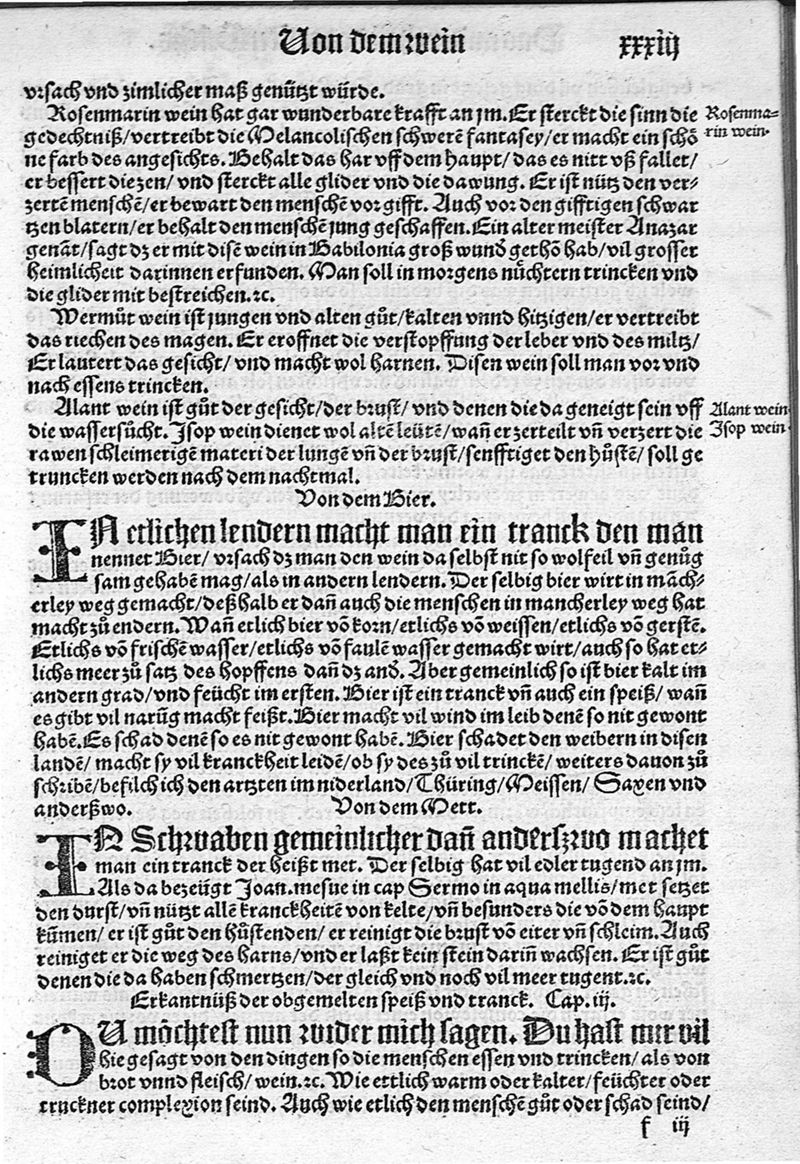 Von dem wein xxxiij
vrsach vnd zimlicher maß genützt würde.
Rosenmarin wein hat gar wunderbare krafft an jm. Er sterckt die sinn die
Rosenma=
rin wein.
gedechtniß/vertreibt die Melancolischen schwerē fantasey/er macht ein schö
ne farb des angesichts. Behalt das har vff dem haupt/das es nitt vß fallet/
er bessert die zen/ vnd sterckt alle glider vnd die dawung. Er ist nütz den ver-
zertē menschē/er bewart den menschē vor gifft. Auch vor den gifftigen schwar
tzen blatern/er behalt den menschē jung geschaffen. Ein alter meister Anazar
genāt/sagt dz er mit disē wein in Babilonia groß wund̕ gethō hab/vil grosser
heimlicheit darinnen erfunden. Man soll in morgens nüchtern trincken vnd
die glider mit bestreichen.⁊c.
Wermůt wein ist jungen vnd alten gůt/kalten vnnd hitzigen/er vertreibt
das riechen des magen. Er eroffnet die verstopffung der leber vnd des miltz/
Er lautert das gesicht/ vnd macht wol harnen. Disen wein soll man vor vnd
nach essens trincken.
Alant wein ist gůt der gesicht/der brust/ vnd denen die da geneigt sein vff
Alant wein
die wassersůcht. Jsop wein dienet wol altē leütē/wañ er zerteilt vñ verzert die
Jsop wein.
rawen schleimerigē materi der lungē vñ der brust/senfftiget den hůstē/ soll ge
truncken werden nach dem nachtmal.
Von dem Bier.
IN etlichen lendern macht man ein tranck den man
nennet Bier/ vrsach dz man den wein da selbst nit so wolfeil vñ genůg
sam gehabē mag/als in andern lendern. Der selbig bier wirt in māch-
erley weg gemacht/deßhalb er dañ auch die menschen in mancherley weg hat
macht zů endern. Wañ etlich bier vō korn/etlichs vō weissen/etlichs vō gerstē.
Etlichs vō frischē wasser/etlichs vō faulē wasser gemacht wirt/auch so hat et-
lichs meer zů satz des hopffens dañ dz and̕. Aber gemeinlich so ist bier kalt im
andern grad/vnd feücht im ersten. Bier ist ein tranck vñ auch ein speiß/ wañ
es gibt vil narūg macht feißt. Bier macht vil wind im leib denē so nit gewont
habē. Es schad denē so es nit gewont habē. Bier schadet den weibern in disen
landē/ macht sy vil kranckheit leidē/ob sy des zů vil trinckē/ weiters dauon zů
schribē/befilch ich den artzten im niderland/Thüring/Meissen/ Saxen vnd
anderßwo. Von dem Mett.
IN Schwaben gemeinlicher dañ anderszwo machet
man ein tranck der heißt met. Der selbig hat vil edler tugend an jm.
Als da bezeügt Joan.mesue in cap Sermo in aqua mellis/met setzet
den durst/vñ nützt allē kranckheitē von kelte/vñ besunders die vō dem haupt
kūmen/ er ist gůt den hůstenden/ er reinigt die brust vō eiter vñ schleim. Auch
reiniget er die weg des harns/vnd er laßt kein stein dariñ wachsen. Er ist gůt
denen die da haben schmertzen/der gleich vnd noch vil meer tugent.⁊c.
Erkantnüß der obgemelten speiß vnd tranck. Cap. iij.
DU möchtest nun wider mich sagen. Du hast mir vil
hie gesagt von den dingen so die menschen essen vnd trincken/ als von
brot vnnd fleisch/ wein.⁊c. Wie ettlich warm oder kalter/feüchter oder
truckner complexion seind. Auch wie etlich den menschē gůt oder schad seind/
f iij